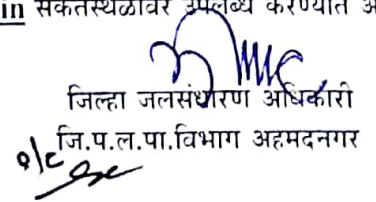 in संकेतस्थळावर उपलब्ध करण्यात
जिल्हा जलसंधारण अधिकारी
जि.प.ल.पा.विभाग अहमदनगर
o/c